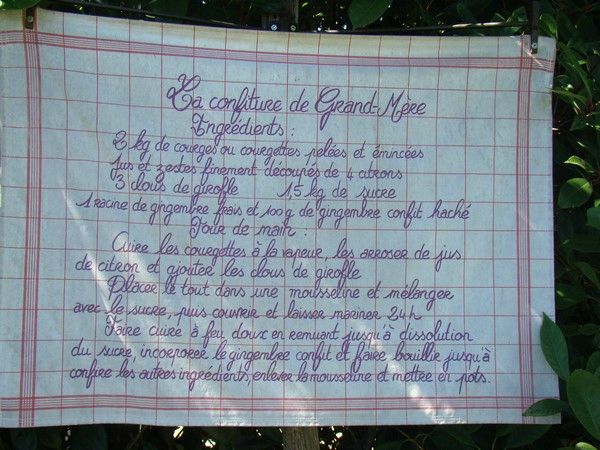 La confiture de Grand-Mère
Ingrédients :
2 kg de courges ou courgettes pelées et émincées
Jus et zestes finement découpés de 4 citrons
3 clous de girofle 1,5 kg de sucre
1 racine de gingembre frais et 100 g de gingembre confit haché
Tour de main :
Cuire les courgettes à la vapeur, les arroser de jus
de citron et ajouter les clous de girofle
Placer le tout dans une mousseline et mélanger
avec le sucre, puis couvrir et laisser mariner 24 h
Faire cuire à feu doux en remuant jusqu'à dissolution
du sucre, incorporer le gingembre confit et faire bouillir jusqu'à
confire les autres ingrédients, enlever la mousseline et mettre en pots.